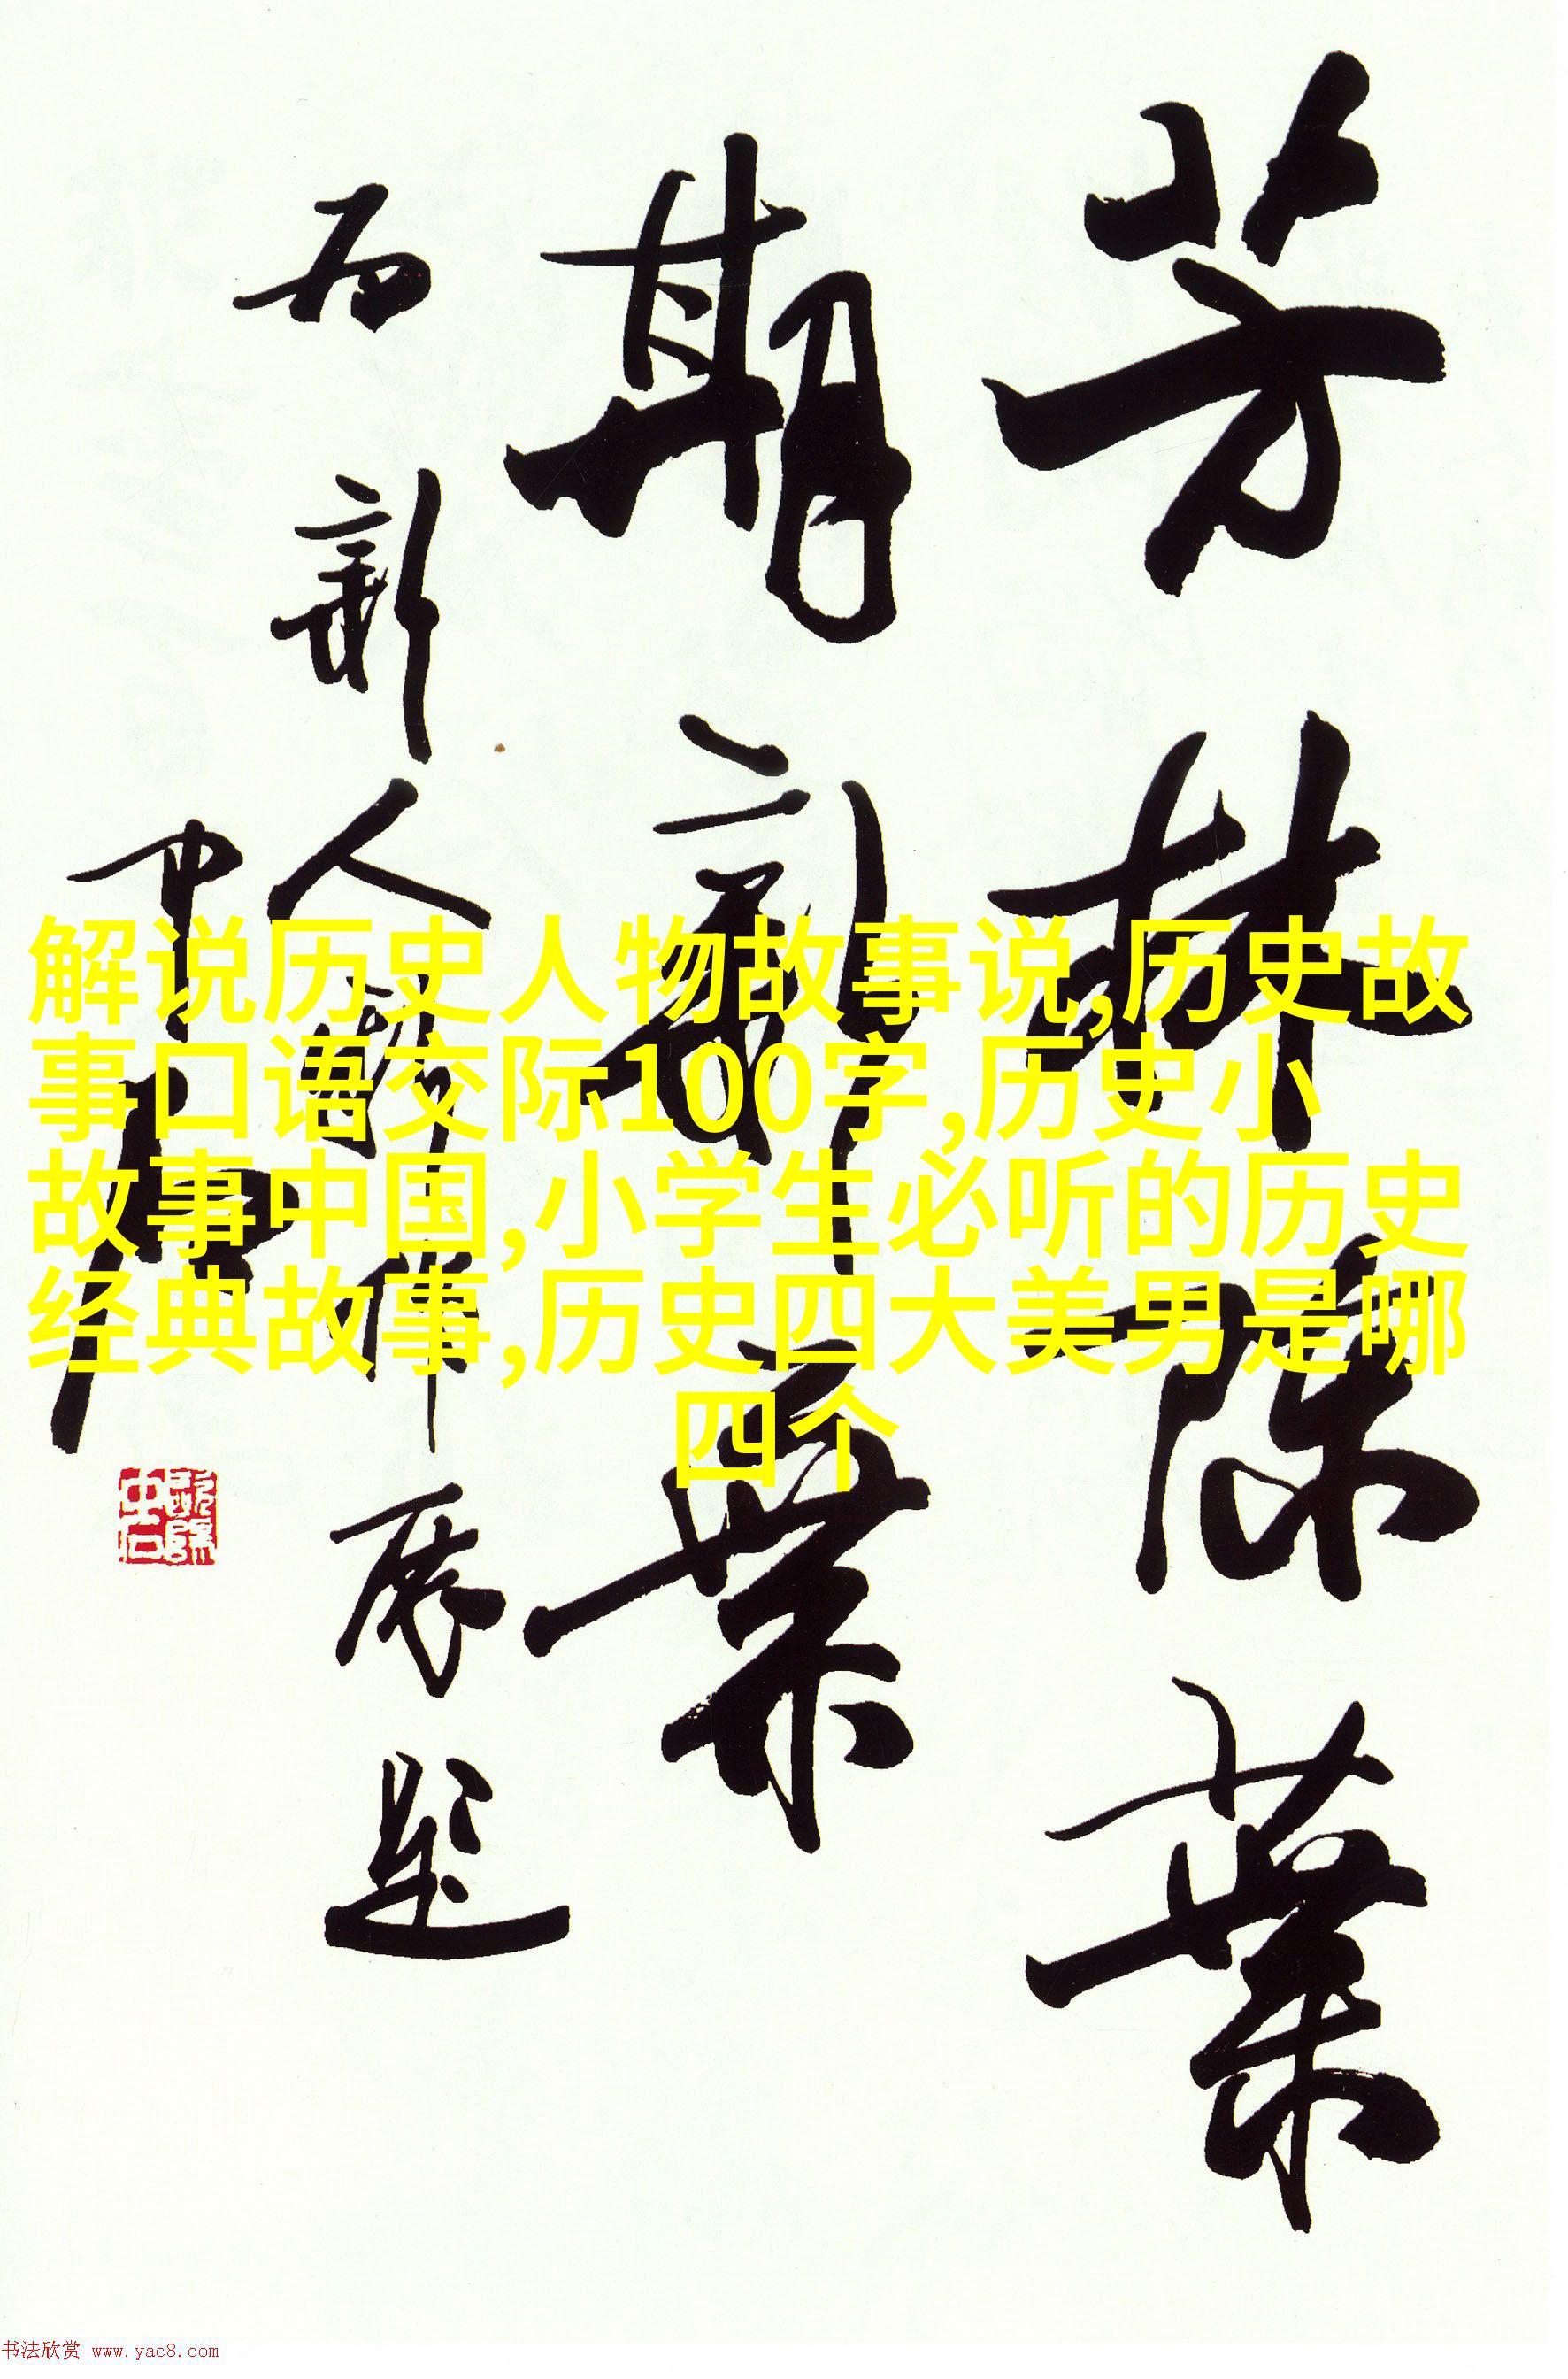 芳林陈葉
期新葉
为新人新作展题
中石
解说历史人物故事说,历史故
事口语交际100字,历史小
故事中国,小学生必听的历史
经典故事,历史四大美男是哪
四个
书法欣赏 www.yac8.com